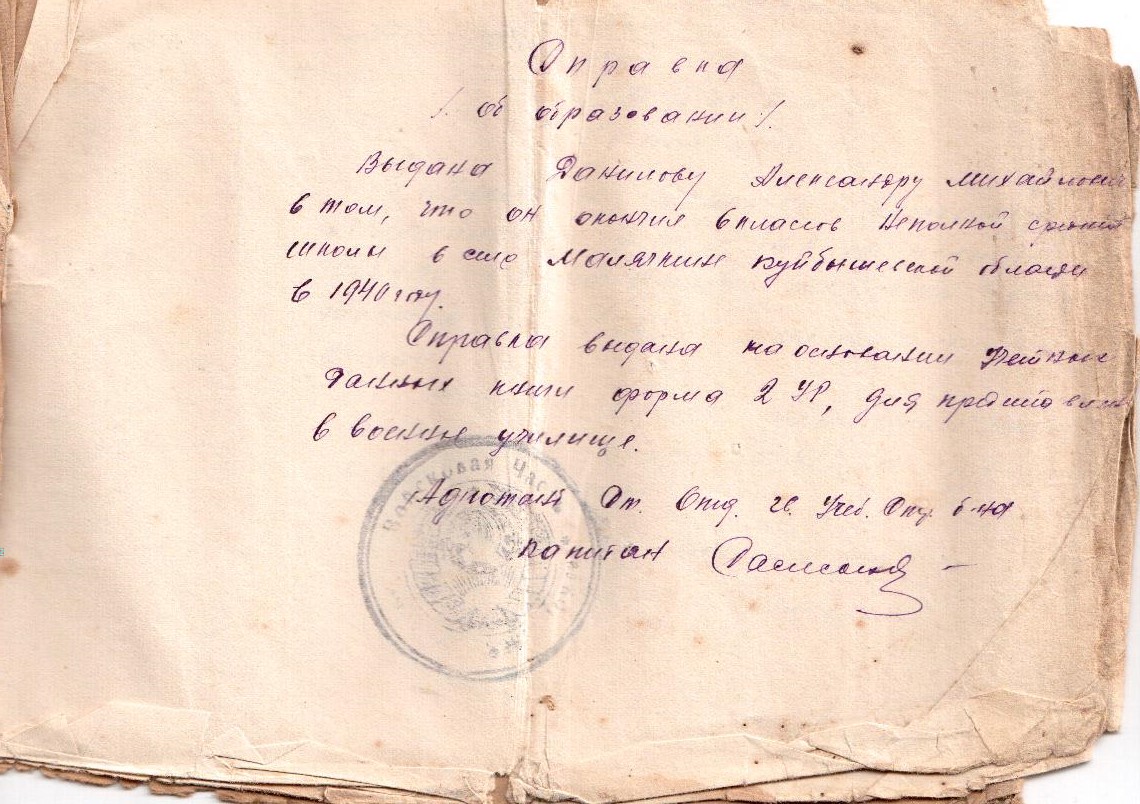 Справка
/. об образовании /.
Выдана Данилову Александру Михайлович
в том, что он окончил 6 классов Неполной средней
школы в селе Малячкин Куйбышевской области
в 1940 году.
Справка выдана на основании
данных книги форма 2 УР, для предтставления
в военное училище.
Адютант От. Отд. гв. Учеб. б-на
капитан
Войсковая Часть